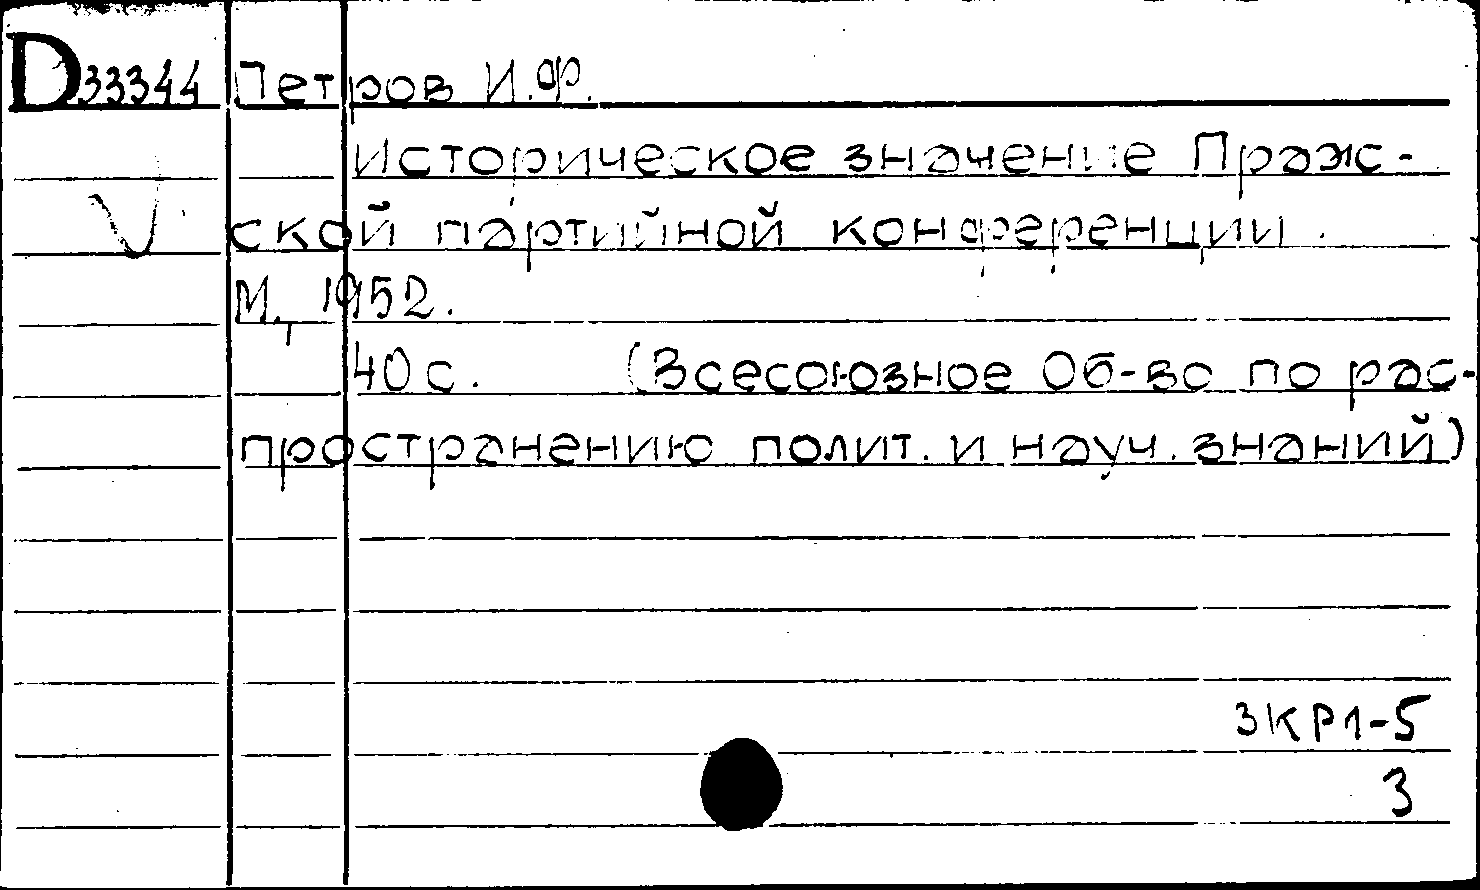 D33344 Петров И.Ф.
Историческое значение Праж-
ской партийной конференции.
М., 1952.
40 с. (Всесоюзное Об-во по рас-
пространению полит. и науч. знаний)
3КР1-5
3